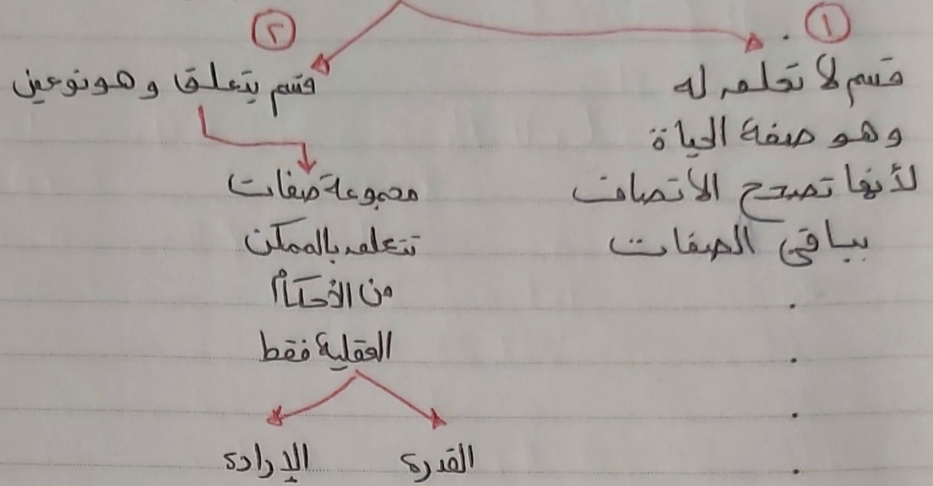 ١
قسم لا تعلق له
وهو صفة الحياة
لأنها تصحح الاتصاف
بباقي الصفات
٢
قسم يتعلق وهو نوعين
مجموعة صفات
تتعلق بالممكن
من الأحكام
العقلية فقط
القدرة
الإرادة